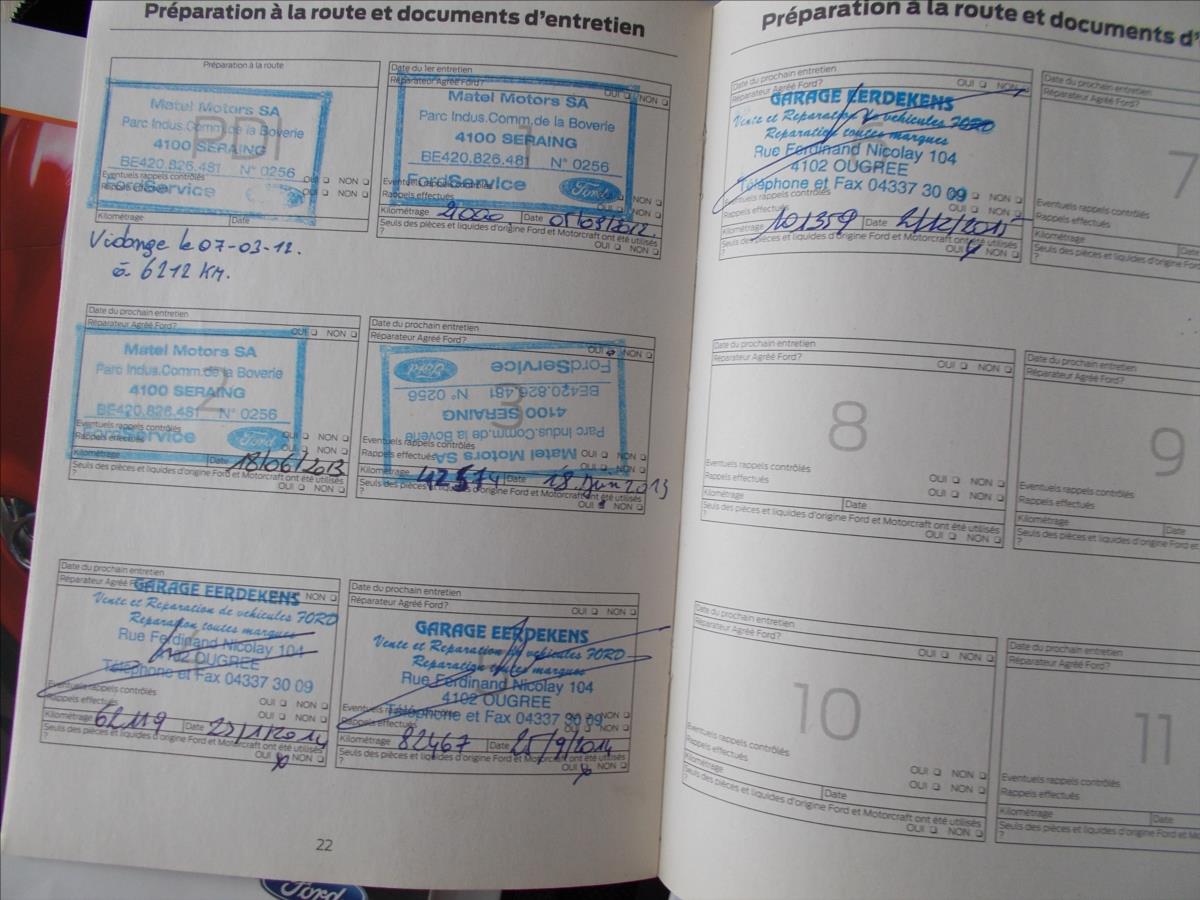 Préparation à la route et documents d'entretien
Préparation à la route
Matel Motors SA
Parc Indus.Comm.de la Boverie
PDI
4100 SERAING
BE420.826.481 N° 0256
Eventuels rappels contrôlés OUI NON
Rappels effectués OUI NON
FordService
Kilométrage Date
Vidange le 07-03-12.
à 6212 KM.
Date du 1er entretien
Réparateur Agréé Ford? OUI NON
Matel Motors SA
Parc Indus.Comm.de la Boverie
1
4100 SERAING
BE420.826.481 N° 0256
Eventuels rappels contrôlés
FordService Ford
Kilométrage Date
Seuls des pièces et liquides d'origine Ford et Motorcraft ont été utilisés
? OUI NON
Date du prochain entretien
Réparateur Agréé Ford? OUI NON
Matel Motors SA
Parc Indus.Comm.de la Boverie
2
4100 SERAING
BE420.826.481 N° 0256
Eventuels rappels contrôlés OUI NON
Rappels effectués OUI NON
FordService Ford
Kilométrage Date 18/06/2013
Seuls des pièces et liquides d'origine Ford et Motorcraft ont été utilisés
? OUI NON
Date du prochain entretien
Réparateur Agréé Ford? OUI NON
FordService Ford
BE420.826.481 N° 0256
3
4100 SERAING
Parc Indus.Comm.de la Boverie
Matel Motors SA
Eventuels rappels contrôlés OUI NON
Rappels effectués OUI NON
Kilométrage Date 18 Juin 2013
Seuls des pièces et liquides d'origine Ford et Motorcraft ont été utilisés
? OUI NON
Date du prochain entretien
Réparateur Agréé Ford? NON
GARAGE EERDEKENS
Vente et Reparation de vehicules FORD
Reparation toutes marques
Rue Ferdinand Nicolay 104
4102 OUGREE
Téléphone et Fax 04337 30 09
Eventuels rappels contrôlés OUI NON
Rappels effectués OUI NON
Kilométrage 62119 Date
Seuls des pièces et liquides d'origine Ford et Motorcraft ont été utilisés
? OUI NON
Date du prochain entretien
Réparateur Agréé Ford? OUI NON
GARAGE EERDEKENS
Vente et Reparation de vehicules FORD
Reparation toutes marques
Rue Ferdinand Nicolay 104
4102 OUGREE
Téléphone et Fax 04337 30 09
Eventuels rappels contrôlés OUI NON
Rappels effectués OUI NON
Kilométrage 82467 Date 25/9/2014
Seuls des pièces et liquides d'origine Ford et Motorcraft ont été utilisés
? OUI NON
22
Ford
Préparation à la route et documents d'
Date du prochain entretien
Réparateur Agréé Ford? OUI NON
GARAGE EERDEKENS
Vente et Reparation de vehicules FORD
Reparation toutes marques
Rue Ferdinand Nicolay 104
4102 OUGREE
Téléphone et Fax 04337 30 09
Eventuels rappels contrôlés OUI NON
Rappels effectués OUI NON
Kilométrage 101359 Date
Seuls des pièces et liquides d'origine Ford et Motorcraft ont été utilisés
? OUI NON
Date du prochain entretien
Réparateur Agréé Ford?
7
Eventuels rappels contrôlés
Rappels effectués
Kilométrage Date
Seuls des pièces et liquides d'origine Ford
?
Date du prochain entretien
Réparateur Agréé Ford? OUI NON
8
Eventuels rappels contrôlés OUI NON
Rappels effectués OUI NON
Kilométrage Date
Seuls des pièces et liquides d'origine Ford et Motorcraft ont été utilisés
? OUI NON
Date du prochain entretien
Réparateur Agréé Ford?
9
Eventuels rappels contrôlés
Rappels effectués
Kilométrage Date
Seuls des pièces et liquides d'origine Ford
?
Date du prochain entretien
Réparateur Agréé Ford? OUI NON
10
Eventuels rappels contrôlés OUI NON
Rappels effectués OUI NON
Kilométrage Date
Seuls des pièces et liquides d'origine Ford et Motorcraft ont été utilisés
? OUI NON
Date du prochain entretien
Réparateur Agréé Ford?
11
Eventuels rappels contrôlés
Rappels effectués
Kilométrage Date
Seuls des pièces et liquides d'origine Ford et
?